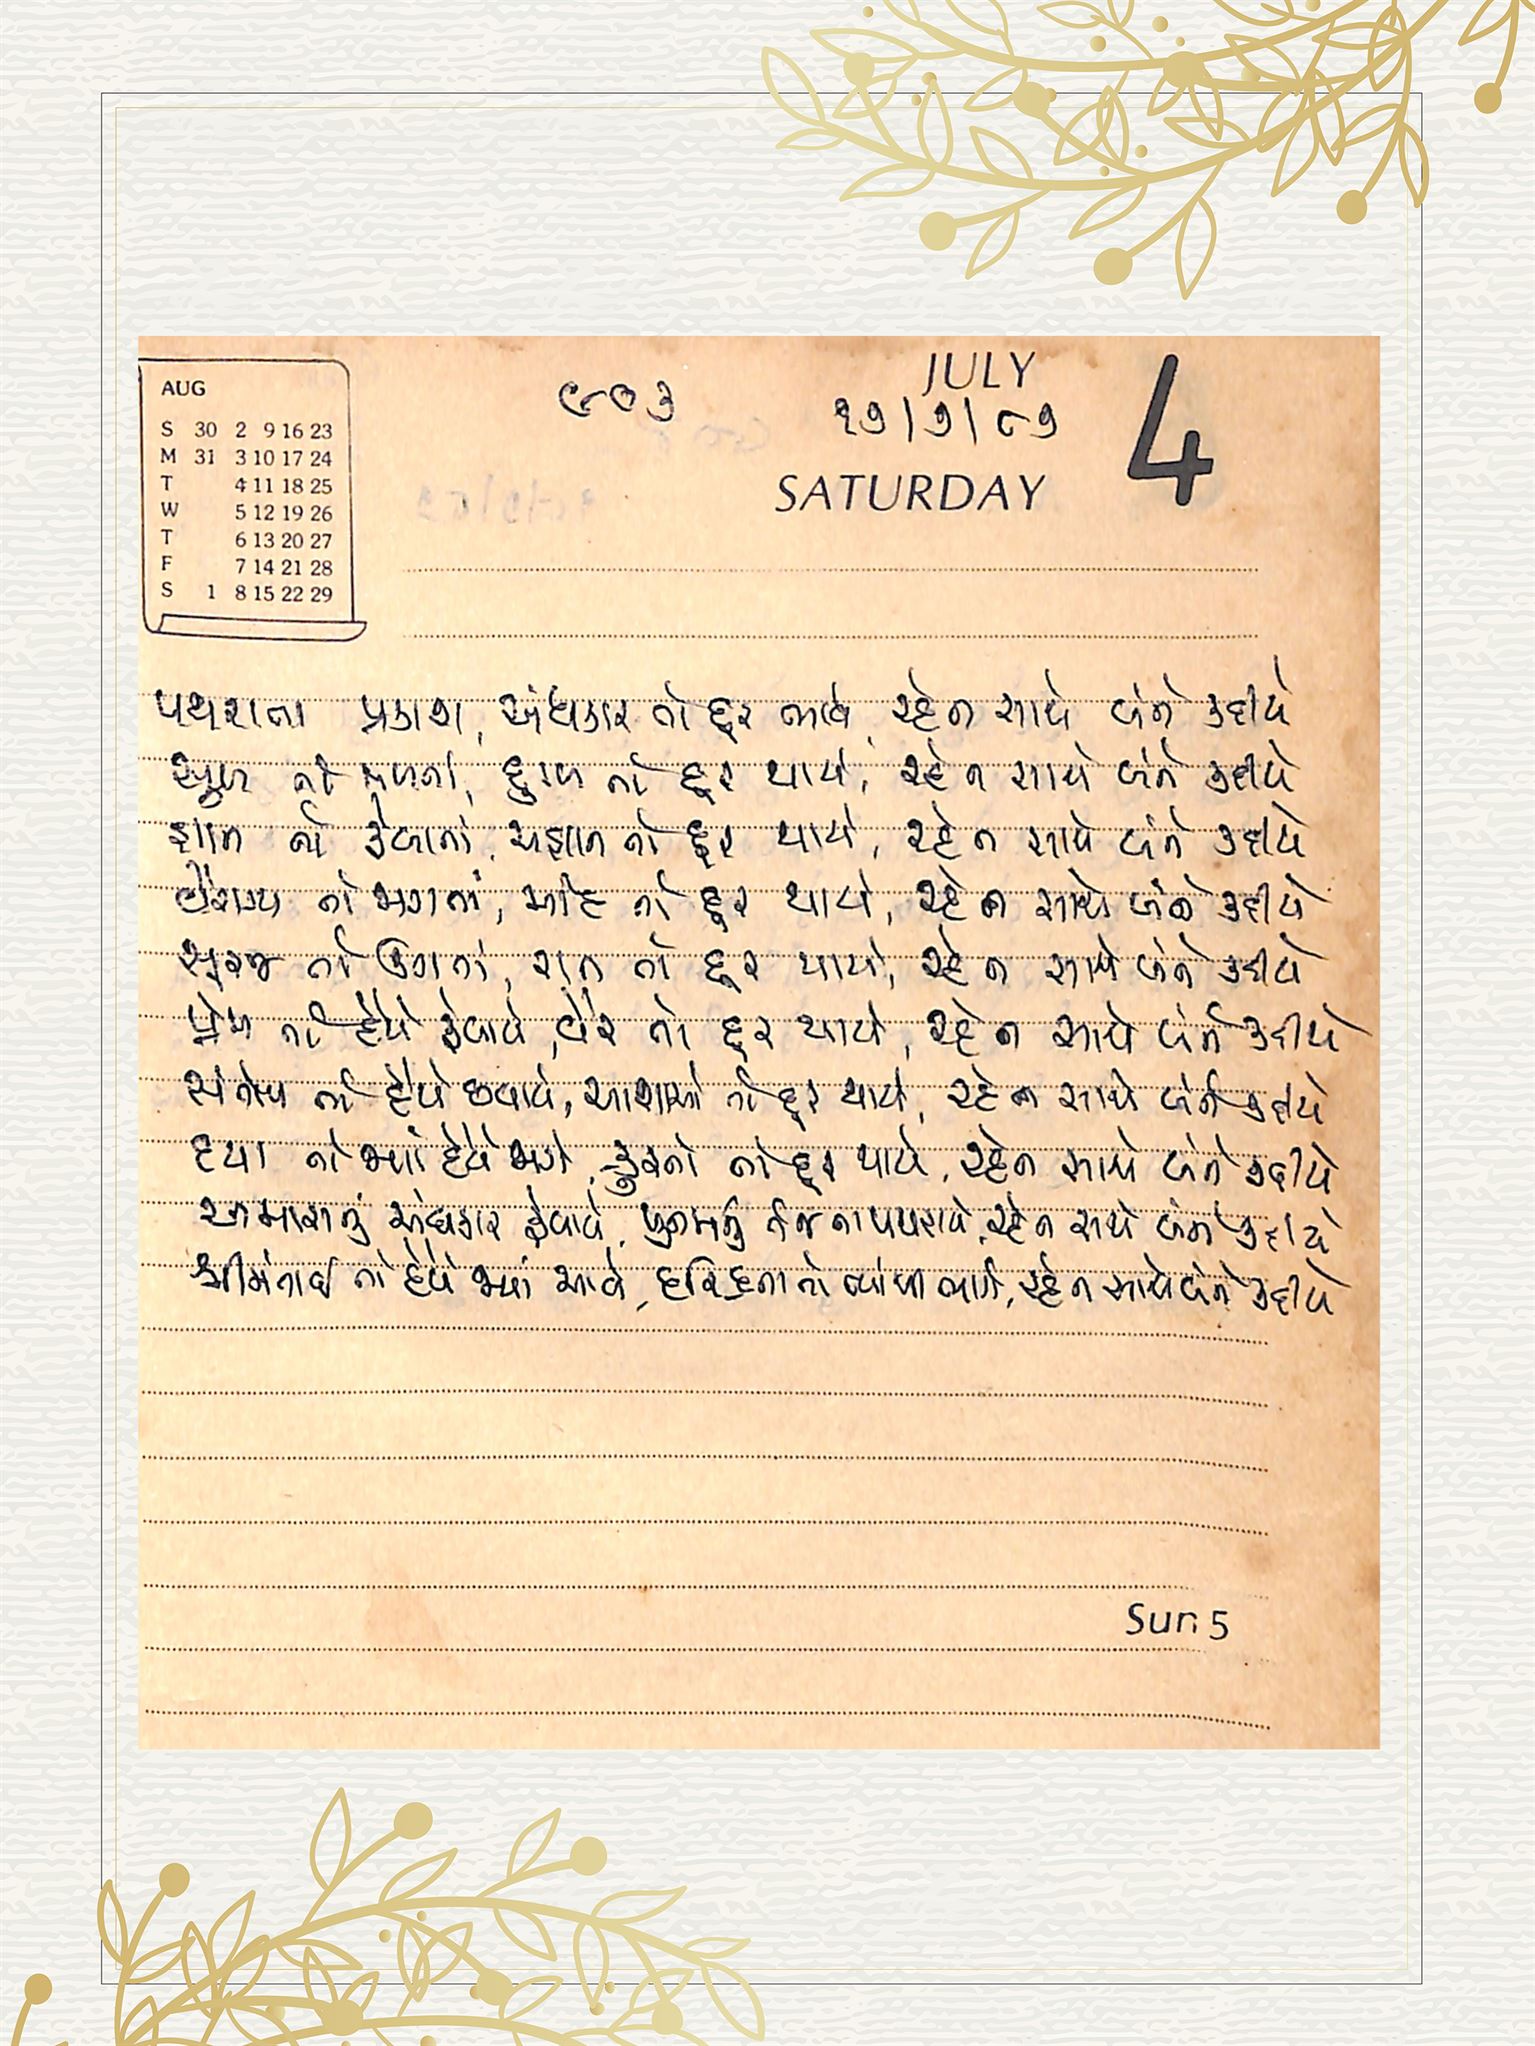 AUG
S 30 2 9 16 23
M 31 3 10 17 24
T 4 11 18 25
W 5 12 19 26
T 6 13 20 27
F 7 14 21 28
S 1 8 15 22 29
૯૦૩
JULY
૧૭|૭|૮૭
SATURDAY
4
પથરાતા પ્રકાશ, અંધકાર તો દૂર ભાગે, રહે ન સાથે બંને કદીયે
સુખ તો મળતાં, દુઃખ તો દૂર થાયે, રહે ન સાથે બંને કદીયે
જ્ઞાન તો ફેલાતાં, અજ્ઞાન તો દૂર થાયે, રહે ન સાથે બંને કદીયે
વૈરાગ્ય તો જાગતાં, મોહ તો દૂર થાયે, રહે ન સાથે બંને કદીયે
સૂરજ તો ઉગતાં, રાત તો દૂર થાયે, રહે ન સાથે બંને કદીયે
પ્રેમ તો હૈયે ફેલાયે, વેર તો દૂર થાયે, રહે ન સાથે બંને કદીયે
સંતોષ તો હૈયે છવાયે, આશાઓ તો દૂર થાયે, રહે ન સાથે બંને કદીયે
દયા તો જ્યાં હૈયે જાગે, ક્રુરતા તો દૂર થાયે, રહે ન સાથે બંને કદીયે
અમાસનું અંધકાર ફેલાયે, પુનમનું તેજ ના પથરાયે, રહે ન સાથે બંને કદીયે
શ્રીમંતાઈ તો હૈયે જ્યાં આવે, દરિદ્રતા તો ત્યાંથી ભાગે, રહે ન સાથે બંને કદીયે
Sun 5